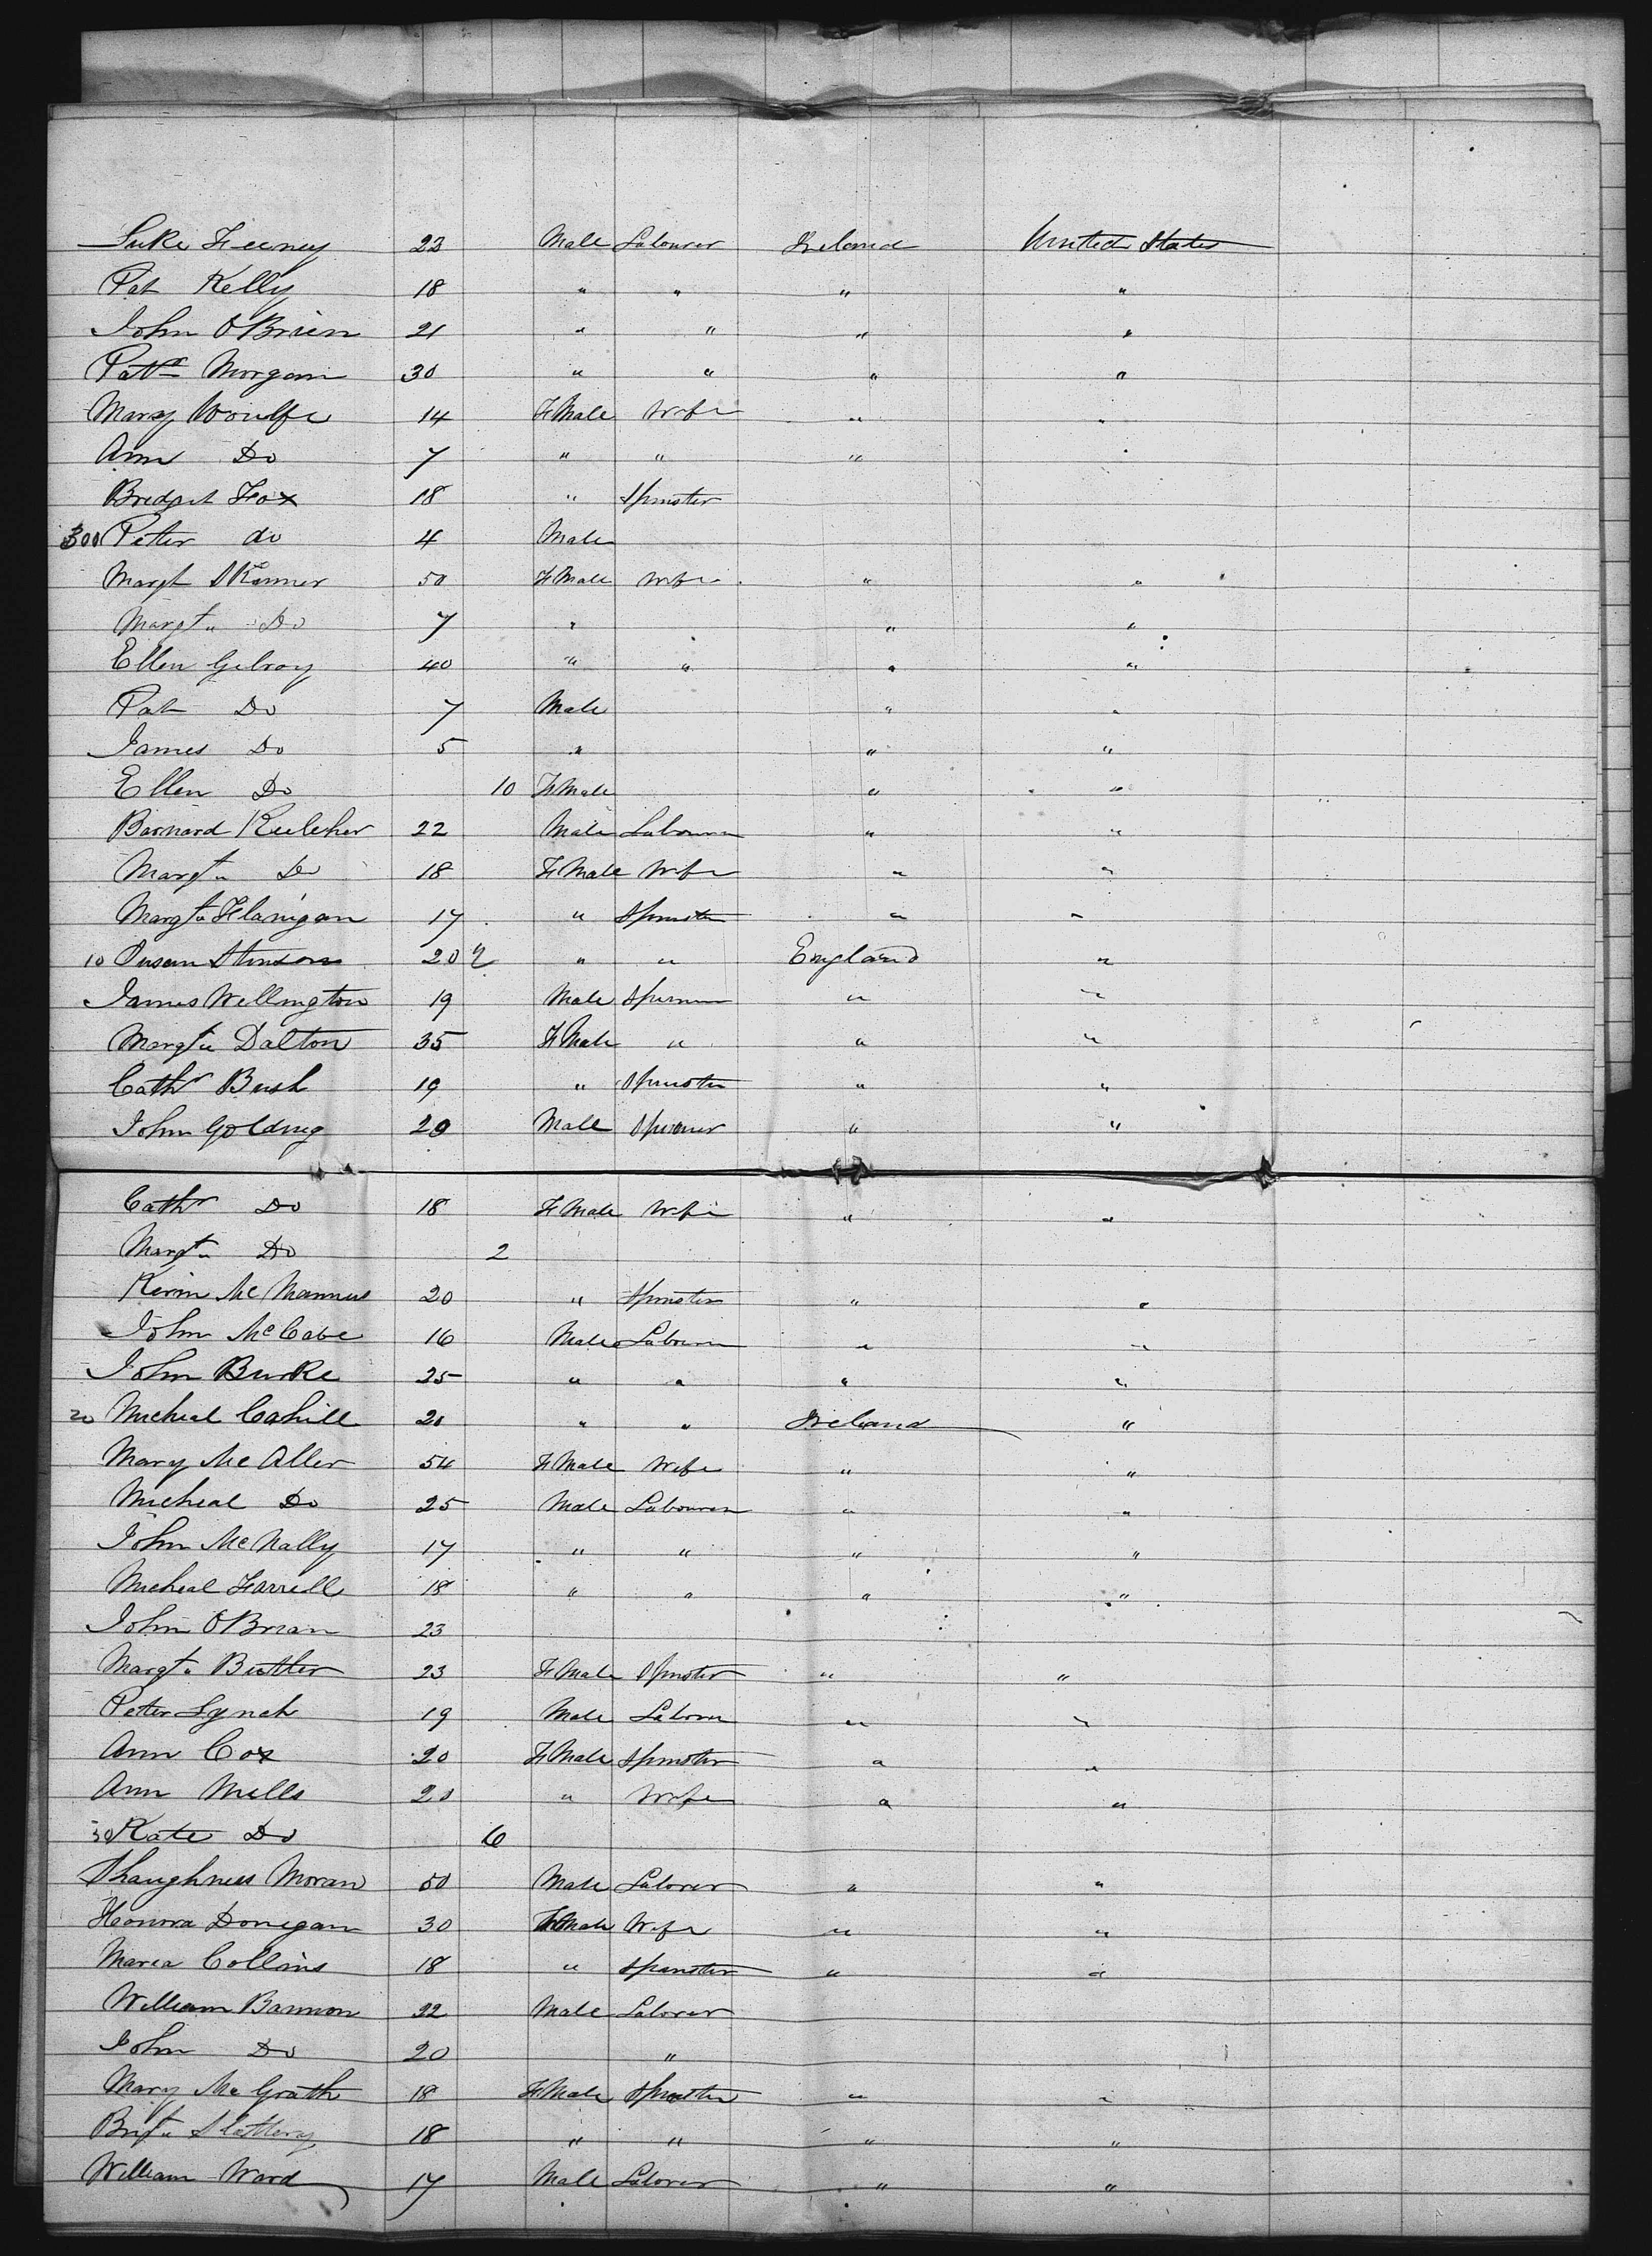 Luke Feeney 23 Male Labourer Ireland United States
Pat Kelly 18 " " " "
John OBrien 21 " " " "
Patk Morgan 30 " " " "
Mary Woulfe 14 FMale Wife " "
Ann Do 7 " " " "
Bredget Fox 18 " Spinster
300 Peter do 4 Male
Margt SKinner 50 FMale Wife " "
Margt " Do 7 " " "
Ellen Gilroy 40 " " " "
Pat Do 7 Male " "
James Do 5 " " "
Ellen Do 10 FMale " "
Barnard 22 Male Labourer " "
Margt " Do 18 FMale Wife " "
Margt " Flanigan 17 " Spinster " "
10 Susan Stinson 20 " " England "
James Wellington 19 Male Spinner " "
Margt " Dalton 35 FMale " " "
Cathr Bush 19 " Spinster " "
John Golding 20 Male Spinner " "
Cathr Do 18 FMale Wife " "
Margt " Do 2
Mc Mannus 20 " Spinster " "
John McCabe 16 Male Labourer " "
John Burke 25 " " " "
20 Micheal Cahill 20 " " Ireland "
Mary Mc Aller 54 FMale Wife " "
Micheal Do 25 Male Labourer " "
John McNally 17 " " " "
Micheal Farrell 18 " " " "
John OBrian 23
Margt " Butler 23 FMale Spinster " "
Peter Lynch 19 Male Laborer " "
Ann Cox 20 FMale Spinster " "
Ann Mills 20 " Wife " "
30 Kate Do 6
Shaughness Moran 50 Male Laborer " "
Honora Donegan 30 FMale Wife " "
Maria Collins 18 " Spinster " "
William Bannon 22 Male Laborer
John Do 20 "
Mary Mc Grath 18 FMale Spinster " "
Slattery 18 " " " "
William Ward 17 Male Laborer " "